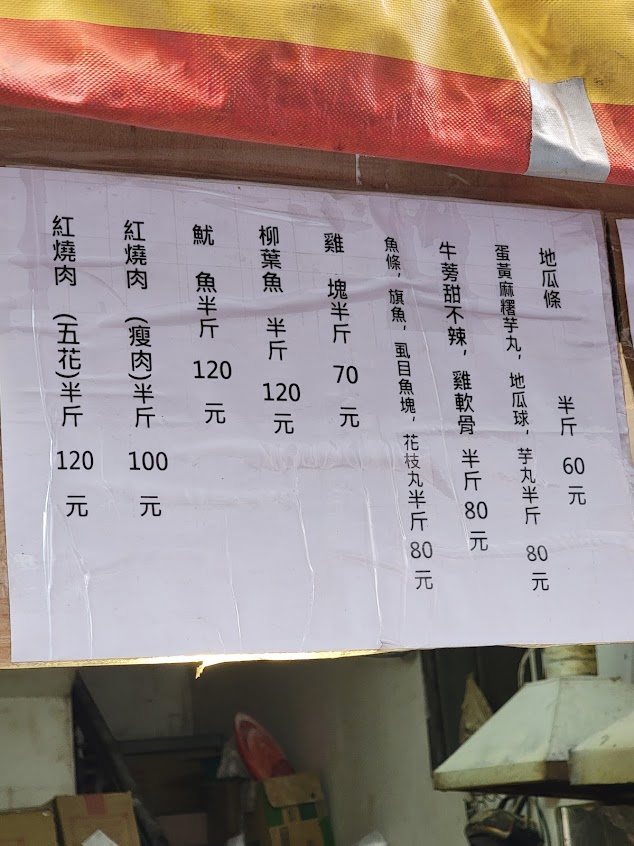 地瓜條 半斤 60 元
蛋黃麻糬芋丸，地瓜球，芋丸半斤 80 元
牛蒡甜不辣，雞軟骨 半斤 80 元
魚條，旗魚，虱目魚塊，花枝丸半斤 80 元
雞 塊半斤 70 元
柳葉魚 半斤 120 元
魷 魚半斤 120 元
紅燒肉 (瘦肉)半斤 100 元
紅燒肉 (五花)半斤 120 元